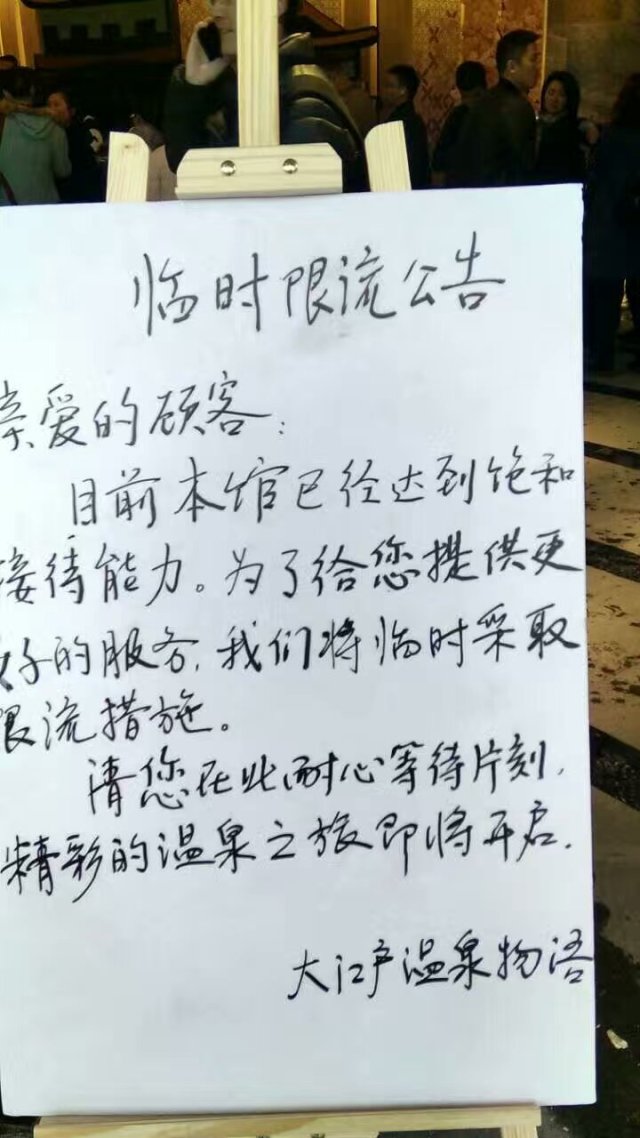 临时限流公告
亲爱的顾客：
目前本馆已经达到饱和
接待能力。为了给您提供更
好的服务,我们将临时采取
限流措施。
请您在此耐心等待片刻,
精彩的温泉之旅即将开启.
大江户温泉物语